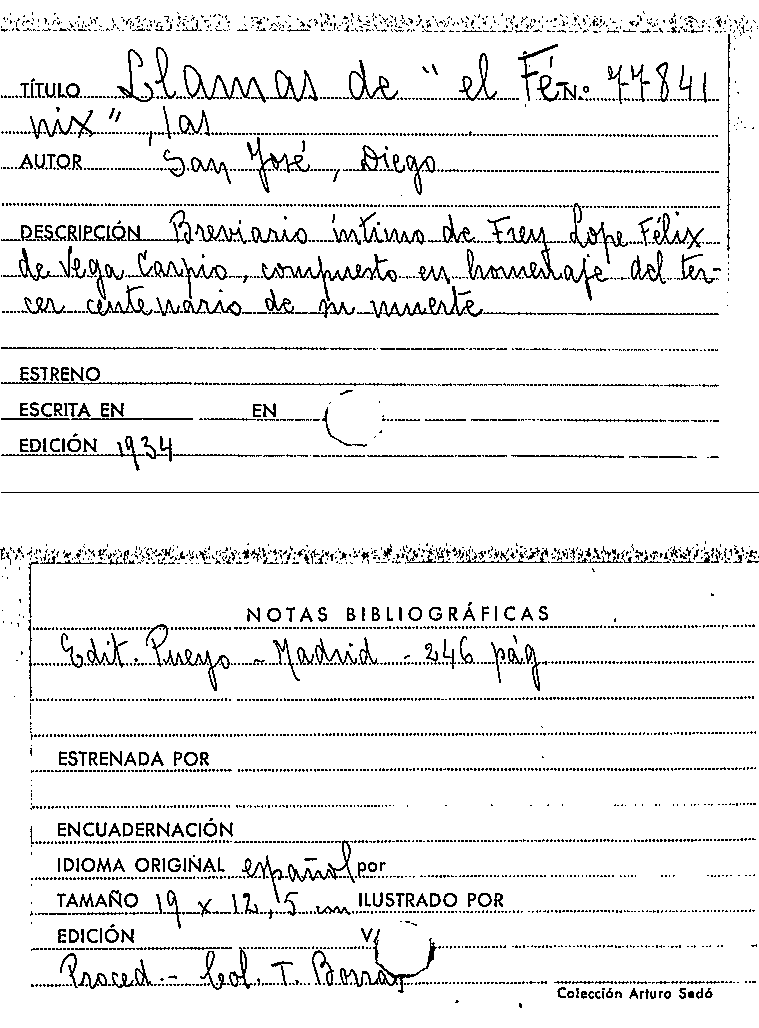 TÍTULO Llamas de "el Fé N.º 77841
nix", las
AUTOR San José, Diego
DESCRIPCIÓN Breviario íntimo de Frey Lope Félix
de Vega Carpio, compuesto en homenaje del ter-
cer centenario de su muerte
ESTRENO
ESCRITA EN EN
EDICIÓN 1934
NOTAS BIBLIOGRÁFICAS
Edit. Pueyo - Madrid - 246 pág
ESTRENADA POR
ENCUADERNACIÓN
IDIOMA ORIGINAL español por
TAMAÑO 19 x 12,5 cm ILUSTRADO POR
EDICIÓN
Proced.- Col. T. Borras
Colección Arturo Sedó